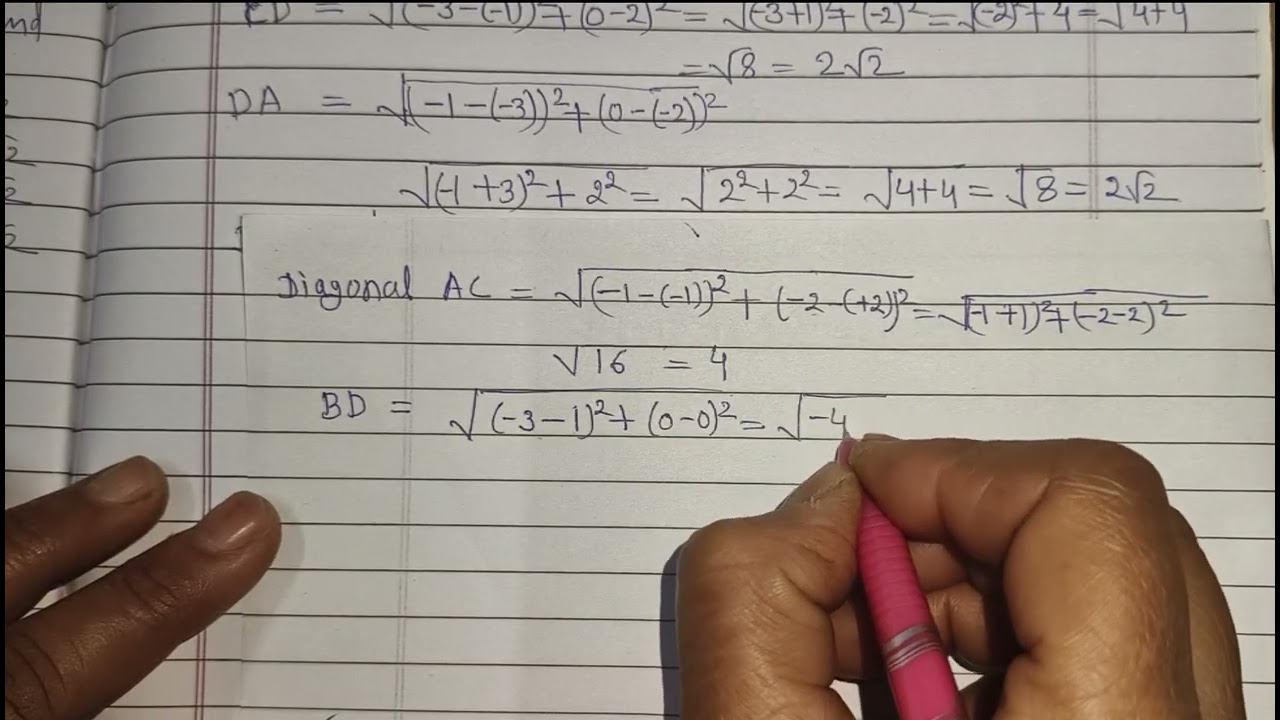 nd CD = √(-3-(-1))²+(0-2)² = √(-3+1)²+(-2)² = √(-2)²+4 = √4+4
= √8 = 2√2
DA = √(-1-(-3))²+(0-(-2))²
√(-1+3)²+2² = √2²+2² = √4+4 = √8 = 2√2
Diagonal AC = √(-1-(-1))²+(-2-(+2))² = √(-1+1))²+(-2-2)²
√16 = 4
BD = √(-3-1)²+(0-0)² = √-4